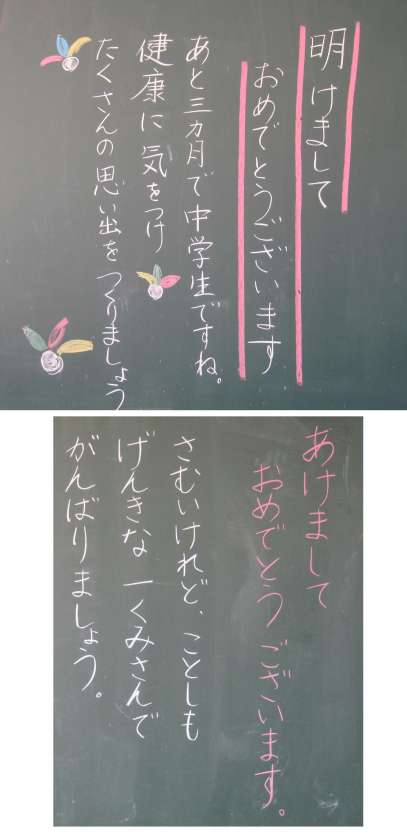 明けまして
おめでとうございます
あと三カ月で中学生ですね。
健康に気をつけ
たくさんの思い出をつくりましょう
あけまして
おめでとうございます。
さむいけれど、ことしも
げんきな一くみさんで
がんばりましょう。